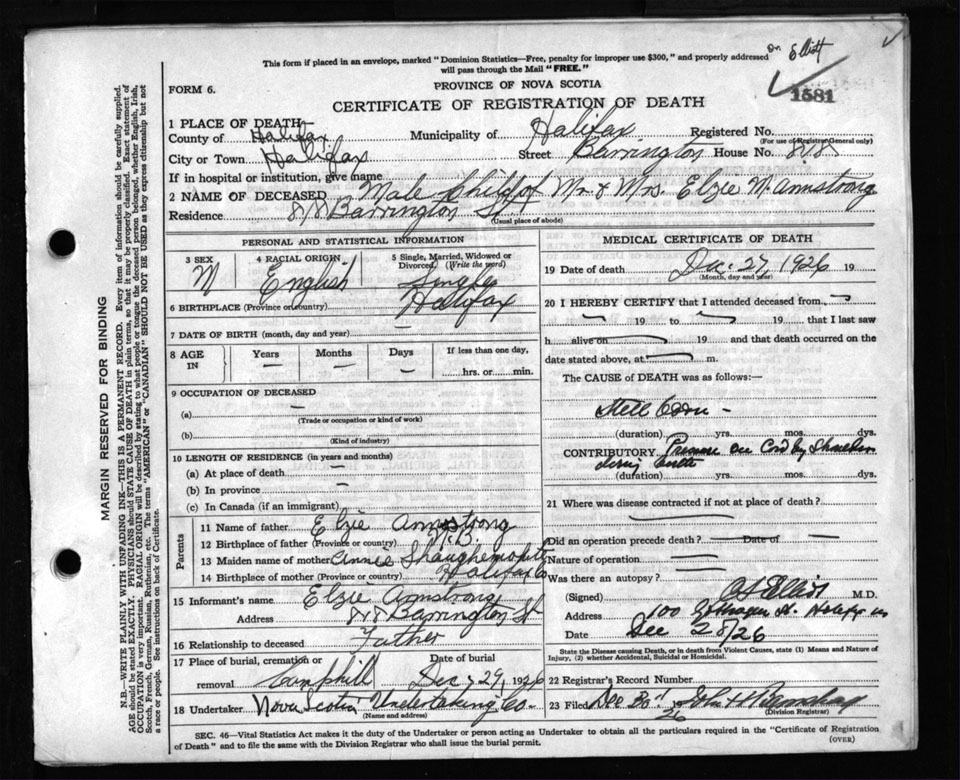 Dr. Elliott
This form if placed in an envelope, marked "Dominion Statistics—Free, penalty for improper use $300," and properly addressed
will pass through the Mail "FREE."
1581
FORM 6.
PROVINCE OF NOVA SCOTIA
CERTIFICATE OF REGISTRATION OF DEATH
1 PLACE OF DEATH
County of Halifax Municipality of Halifax Registered No.
(For use of Registrar General only)
City or Town Halifax Street Barrington House No. 818
If in hospital or institution, give name
2 NAME OF DECEASED Male Child of Mr. & Mrs. Elzie M. Armstrong
Residence 818 Barrington St
(Usual place of abode)
PERSONAL AND STATISTICAL INFORMATION
3 SEX M
4 RACIAL ORIGIN English
5 Single, Married, Widowed or Divorced (Write the word) Single
6 BIRTHPLACE (Province or country) Halifax
7 DATE OF BIRTH (month, day and year) —
8 AGE IN Years — Months — Days — If less than one day, ......hrs. or......min.
9 OCCUPATION OF DECEASED
(a) —
(Trade or occupation or kind of work)
(b)
(Kind of industry)
10 LENGTH OF RESIDENCE (in years and months)
(a) At place of death —
(b) In province —
(c) In Canada (if an immigrant)
Parents
11 Name of father Elzie Armstrong
12 Birthplace of father (Province or country) N.B.
13 Maiden name of mother Annie
14 Birthplace of mother (Province or country) Halifax Co
15 Informant's name Elzie Armstrong
Address 818 Barrington St
16 Relationship to deceased Father
17 Place of burial, cremation or removal Camphill Date of burial Dec 29, 1926
18 Undertaker Nova Scotia Undertaking Co
(Name and address)
MEDICAL CERTIFICATE OF DEATH
19 Date of death Dec. 27, 1926 19
(Month, day and year)
20 I HEREBY CERTIFY that I attended deceased from, —
— 19 to — 19, that I last saw
h alive on — 19 and that death occurred on the
date stated above, at — m.
The CAUSE of DEATH was as follows:—
Still born —
(duration) yrs. mos. dys.
CONTRIBUTORY. Pressure on Cord by Shoulder
during birth
(duration) yrs. mos. dys.
21 Where was disease contracted if not at place of death?
Did an operation precede death? — Date of —
Nature of operation —
Was there an autopsy? —
(Signed) Elliott M.D.
Address 100 Gottingen St. Halifax NS
Date Dec 28/26
State the Disease causing Death, or in death from Violent Causes, state (1) Means and Nature of
Injury, (2) whether Accidental, Suicidal or Homicidal.
22 Registrar's Record Number
23 Filed Dec 30 1926 John H
(Division Registrar)
SEC. 46—Vital Statistics Act makes it the duty of the Undertaker or person acting as Undertaker to obtain all the particulars required in the "Certificate of Registration
of Death" and to file the same with the Division Registrar who shall issue the burial permit.
(OVER)
MARGIN RESERVED FOR BINDING
N.B.—WRITE PLAINLY WITH UNFADING INK—THIS IS A PERMANENT RECORD. Every item of information should be carefully supplied.
AGE should be stated EXACTLY. PHYSICIANS should STATE CAUSE OF DEATH in plain terms, so that it may be properly classified. Exact statement of
OCCUPATION is very important. RACIAL ORIGIN will be described by stating to what people or tongue the deceased person belonged, whether English, Irish,
Scotch, French, German, Russian, Ruthenian, etc. The terms "AMERICAN" or "CANADIAN" SHOULD NOT BE USED as they express citizenship but not
a race or people. See instructions on back of Certificate.